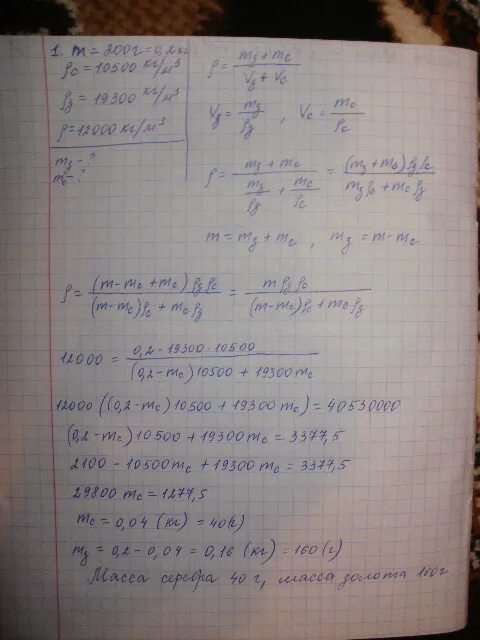 1. m = 200г = 0,2 кг
ρc = 10500 кг/м³
ρз = 19300 кг/м³
ρ = 12000 кг/м³
mз - ?
mc - ?
ρ = (mз + mc) / (Vз + Vc)
Vз = mз/ρз , Vc = mc/ρc
ρ = (mз + mc) / (mз/ρз + mc/ρc) = (mз + mc) ρз ρc / (mз ρc + mc ρз)
m = mз + mc , mз = m - mc
ρ = (m - mc + mc) ρз ρc / ((m - mc) ρc + mc ρз) = m ρз ρc / ((m - mc) ρc + mc ρз)
12000 = 0,2 · 19300 · 10500 / ((0,2 - mc) 10500 + 19300 mc)
12000 ((0,2 - mc) 10500 + 19300 mc) = 40530000
(0,2 - mc) 10500 + 19300 mc = 3377,5
2100 - 10500 mc + 19300 mc = 3377,5
29800 mc = 1277,5
mc = 0,04 (кг) = 40(г)
mз = 0,2 - 0,04 = 0,16 (кг) = 160 (г)
Масса серебра 40 г, масса золота 160г